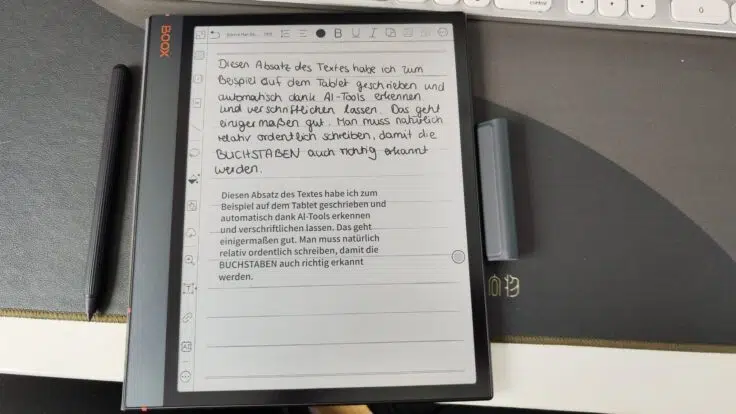 BOOX
B U I
Diesen Absatz des Textes habe ich zum
Beispiel auf dem Tablet geschrieben und
automatisch dank AI-Tools erkennen
und verschriftlichen lassen. Das geht
einigermaßen gut. Man muss natürlich
relativ ordentlich schreiben, damit die
BUCHSTABEN auch richtig erkannt
werden.
Diesen Absatz des Textes habe ich zum
Beispiel auf dem Tablet geschrieben und
automatisch dank AI-Tools erkennen
und verschriftlichen lassen. Das geht
einigermaßen gut. Man muss natürlich
relativ ordentlich schreiben, damit die
BUCHSTABEN auch richtig erkannt
werden.